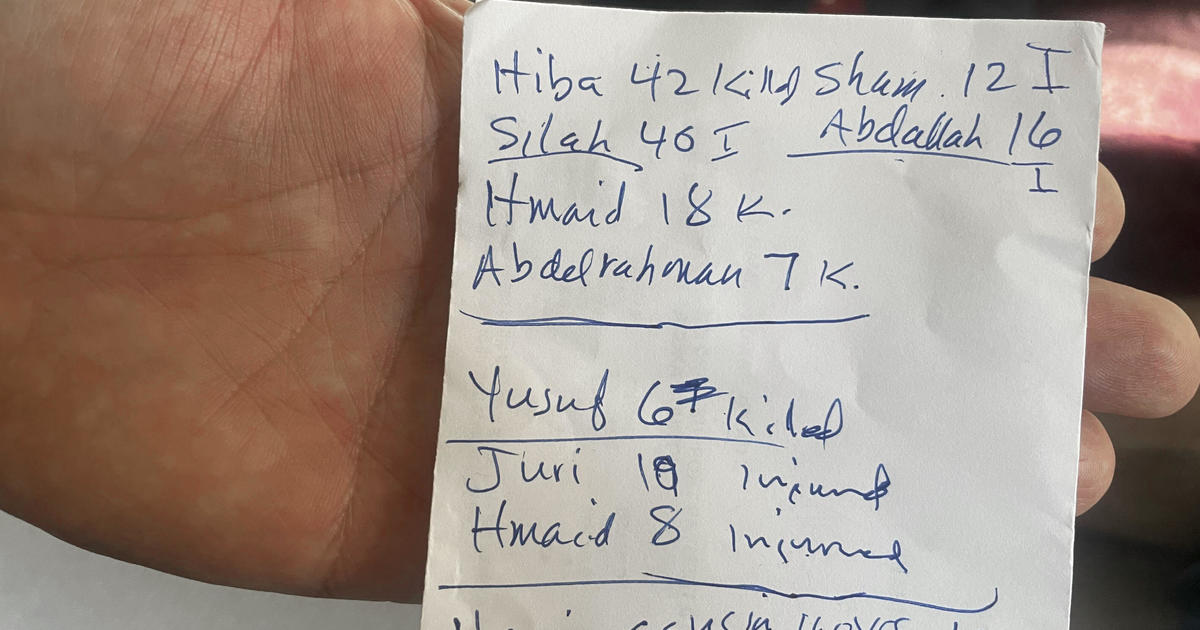 Hiba 42 killed Sham. 12 I
Silah 40 I Abdallah 16
I
Hmaid 18 K.
Abdelrahman 7 K.
Yusuf 6 Killed
Juri injured
Hmaid 8 injured